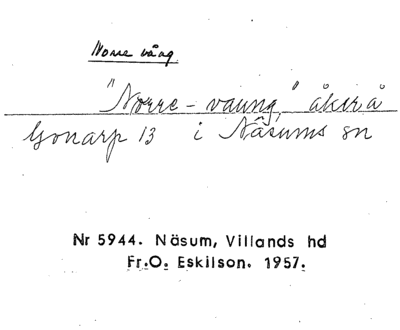 Norre vång
"Norre-vaung," åker å
Gonarp 13 i Näsums sn
Nr 5944. Näsum, Villands hd
Fr.O. Eskilson. 1957.